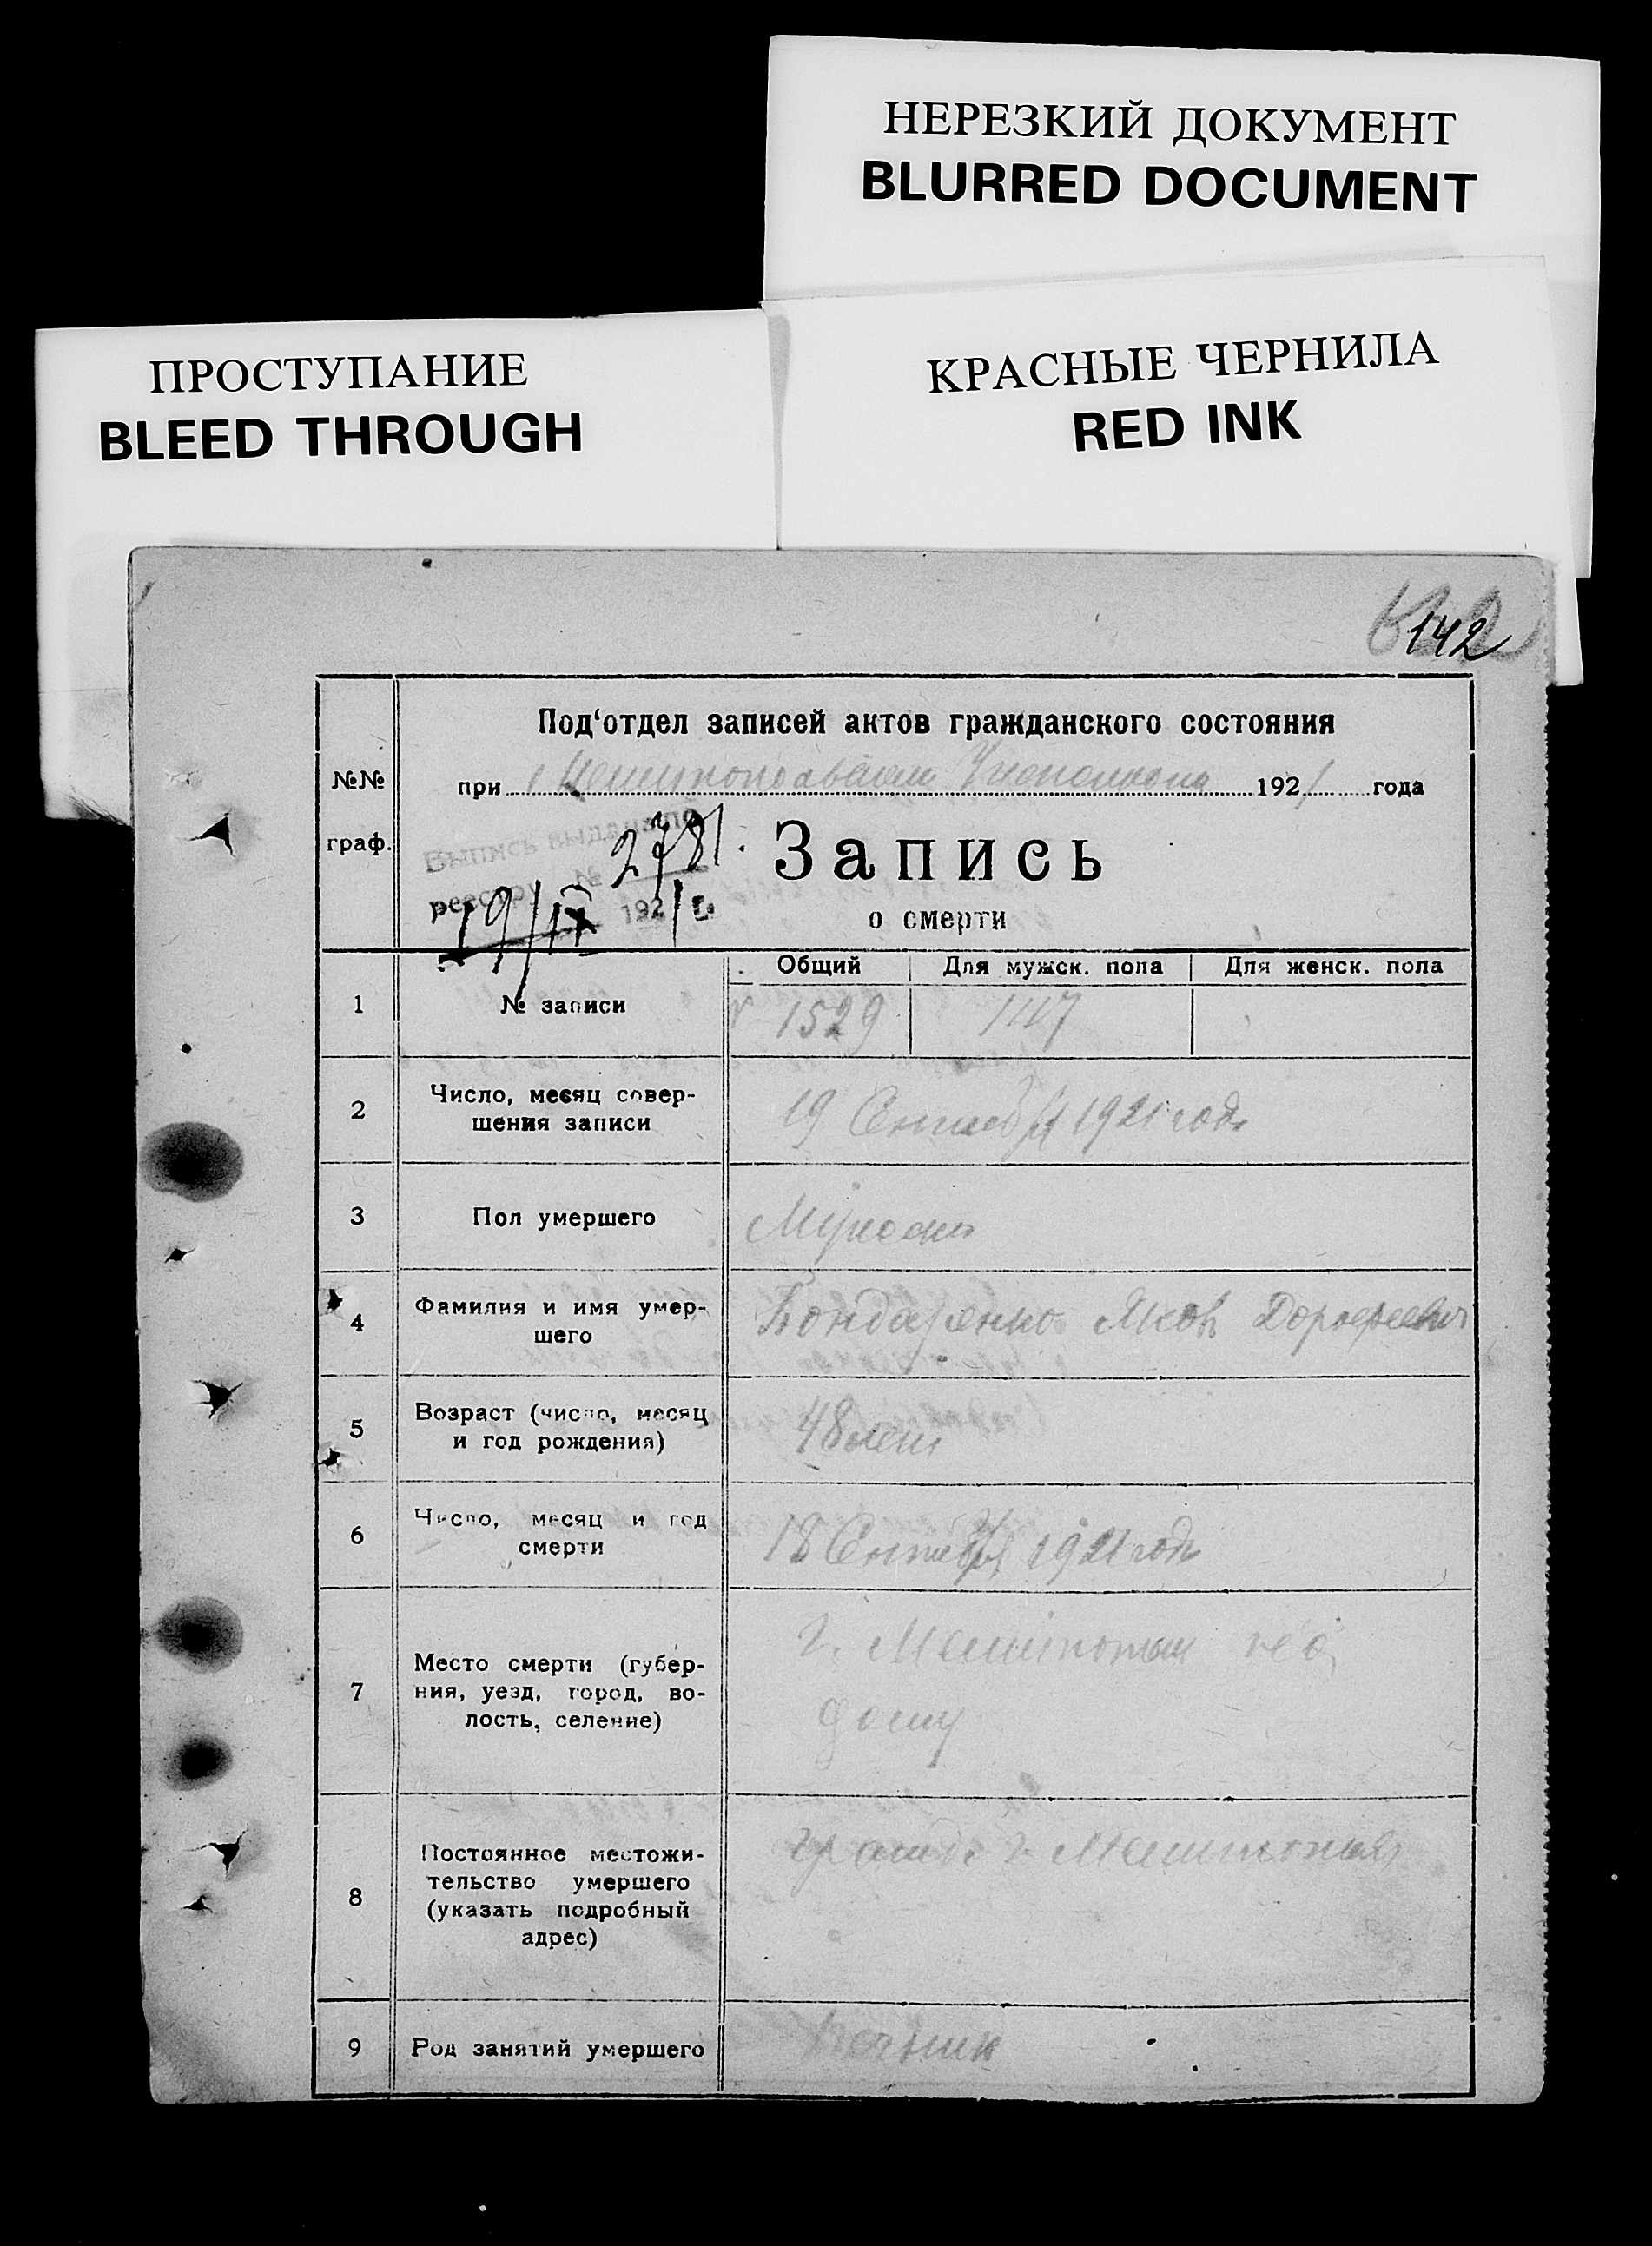 НЕРЕЗКИЙ ДОКУМЕНТ
BLURRED DOCUMENT
ПРОСТУПАНИЕ
BLEED THROUGH
КРАСНЫЕ ЧЕРНИЛА
RED INK
142
№№ граф.
Под‘отдел записей актов гражданского состояния
при 1921 года
Выпись выдана по
реестру № 2781
19/IX 1921 г.
Запись
о смерти
Общий Для мужск. пола Для женск. пола
1 № записи 1529
2 Число, месяц совер-
шения записи
19 Сентября 1921 года
3 Пол умершего Мужской
4 Фамилия и имя умер-
шего
Бондаренко Яков Дорофеевич
5 Возраст (число, месяц
и год рождения)
48 лет
6 Число, месяц и год
смерти
18 Сентября 1921 года
7 Место смерти (губер-
ния, уезд, город, во-
лость, селение)
г. Мелитополь
дому
8 Постоянное местожи-
тельство умершего
(указать подробный
адрес)
г. Мелитополя
9 Род занятий умершего Печник